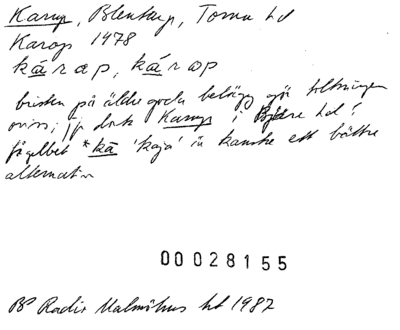 Karup, Blentarp, Torna hd
Karop 1478
kāræp, kārap
bristen på äldre goda belägg gör tolkningen
oviss; jfr dock Karup i Bjäre hd!
fågelbet *kā 'kaja' är kanske ett bättre
alternativ
00028155
BP Radix Malmöhus hd 1987